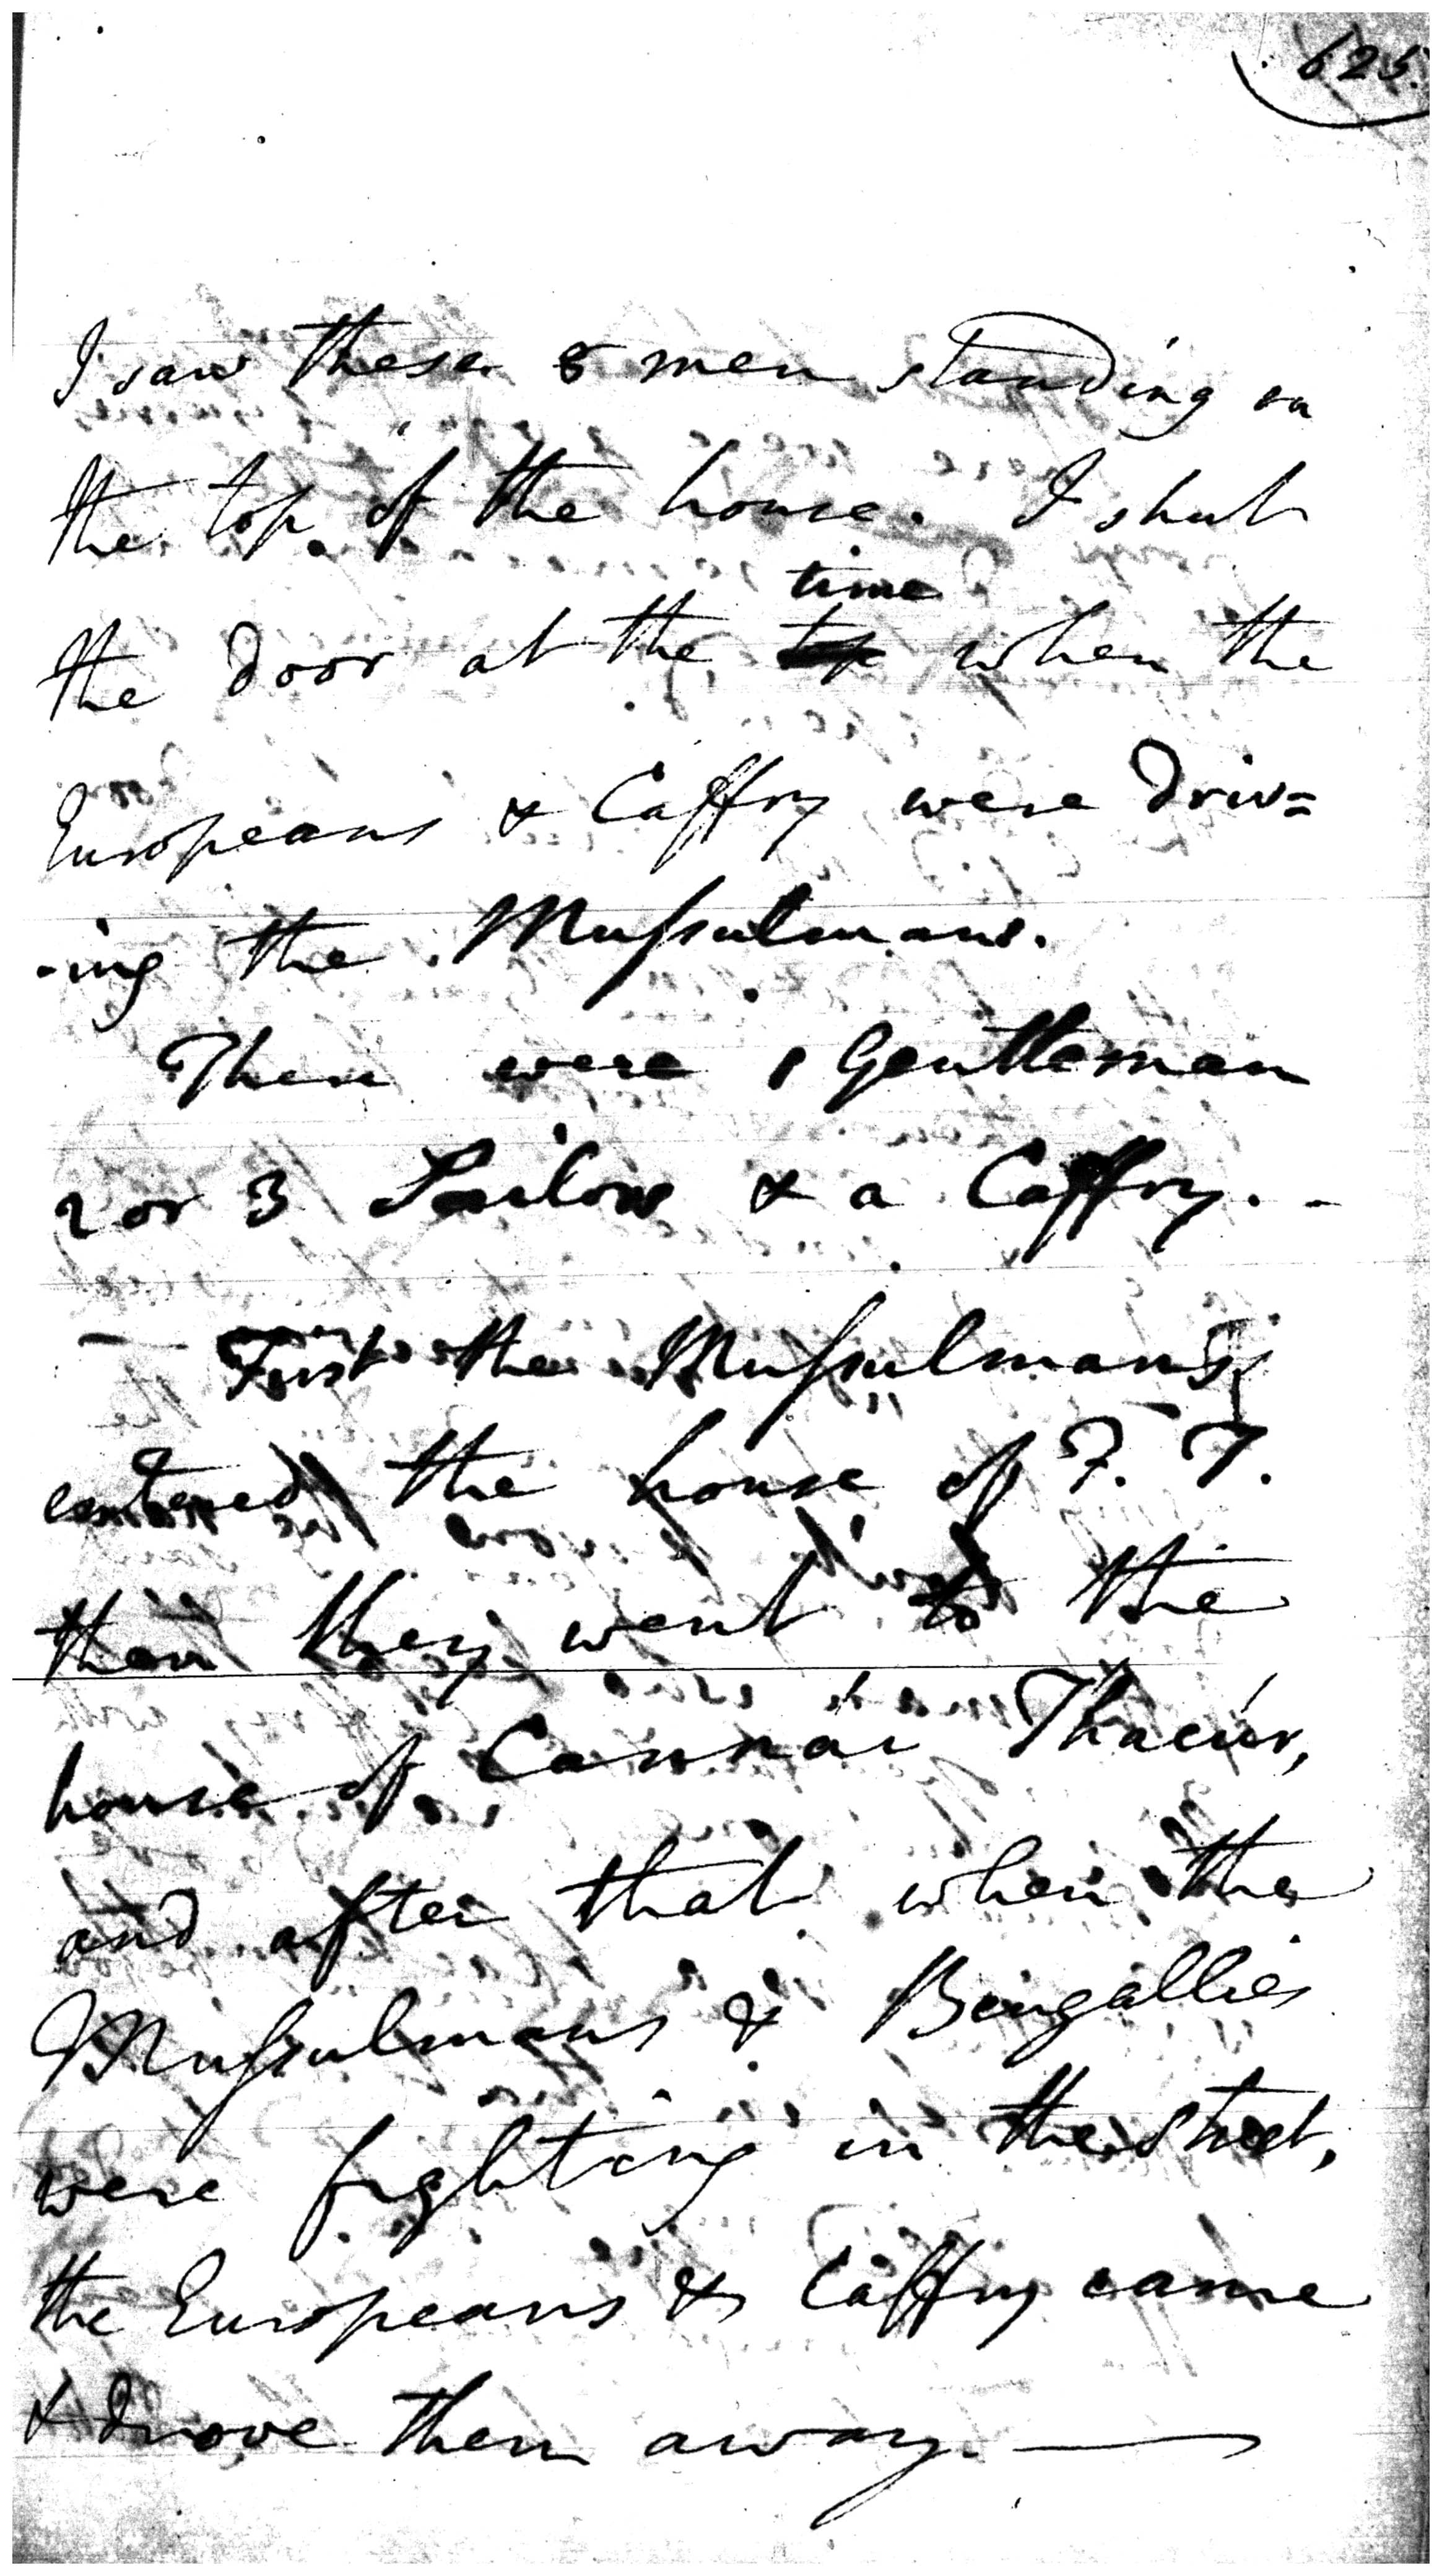 625.
I saw these 8 men standing on
the top of the house. I shut
time
the door at the when the
Europeans & Caffry were driv=
-ing the Mussulmans.
There were 1 Gentleman
2 or 3 Sailors & a Caffry. -
- First the Mussulmans
entered the house of F. T.
then they went to the
house of Cannai Thacur,
and after that when the
Mussulmans & Bengallies
were fighting in the street,
the Europeans & Caffry came
& drove them away. —